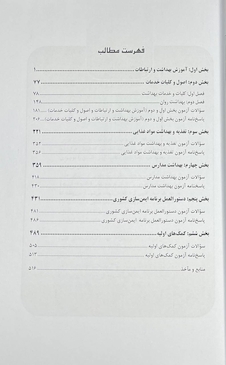 فهرست مطالب
بخش اول: آموزش بهداشت و ارتباطات ۱
بخش دوم: اصول و کلیات خدمات ۷۷
فصل اول: کلیات و خدمات بهداشت ۷۸
فصل دوم: بهداشت روان ۱۴۸
سؤالات آزمون بخش اول و دوم (آموزش بهداشت و ارتباطات و اصول و کلیات خدمات) ۱۸۱
پاسخ‌نامه آزمون بخش اول و دوم (آموزش بهداشت و ارتباطات و اصول و کلیات خدمات) ۲۰۲
بخش سوم: تغذیه و بهداشت مواد غذایی ۲۲۱
سؤالات آزمون تغذیه و بهداشت مواد غذایی ۳۴۳
پاسخ‌نامه آزمون تغذیه و بهداشت مواد غذایی ۳۵۲
بخش چهارم: بهداشت مدارس ۳۵۹
سؤالات آزمون بهداشت مدارس ۴۱۸
پاسخ‌نامه آزمون بهداشت مدارس ۴۳۰
بخش پنجم: دستورالعمل برنامه ایمن‌سازی کشوری ۴۳۱
سؤالات آزمون دستورالعمل برنامه ایمن‌سازی کشوری ۴۸۱
پاسخ‌نامه آزمون دستورالعمل برنامه ایمن‌سازی کشوری ۴۸۷
بخش ششم: کمک‌های اولیه ۴۸۹
سؤالات آزمون کمک‌های اولیه ۵۰۵
پاسخ‌نامه آزمون کمک‌های اولیه ۵۱۳
منابع و مآخذ ۵۱۴